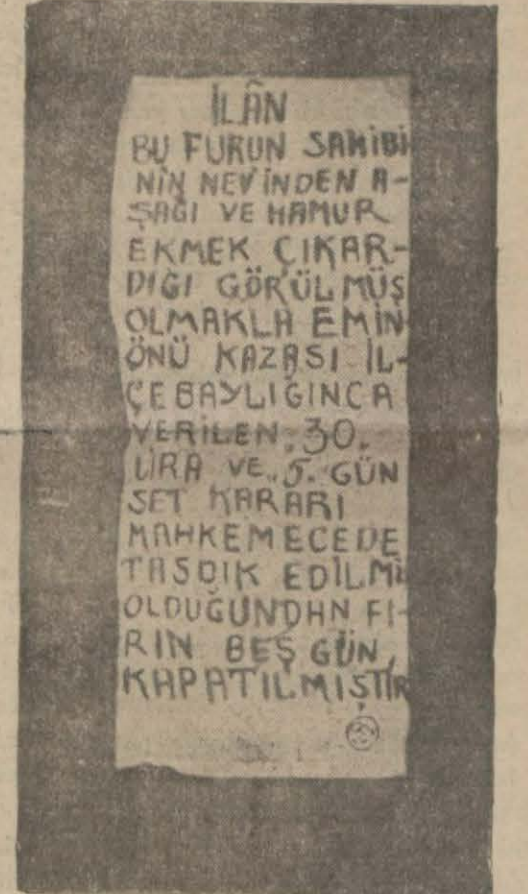 İLÂN
BU FURUN SAHİBİ
NİN NEV'İNDEN A-
ŞAĞI VE HAMUR
EKMEK ÇIKAR-
DIĞI GÖRÜLMÜŞ
OLMAKLA EMİN-
ÖNÜ KAZASI İL-
ÇEBAYLIĞINCA
VERİLEN .30.
LİRA VE „5." GÜN
SET KARARI
MAHKEMECEDE
TASDIK EDİLMİ
OLDUĞUNDAN FI-
RIN BEŞ GÜN,
KAPATILMIŞTIR